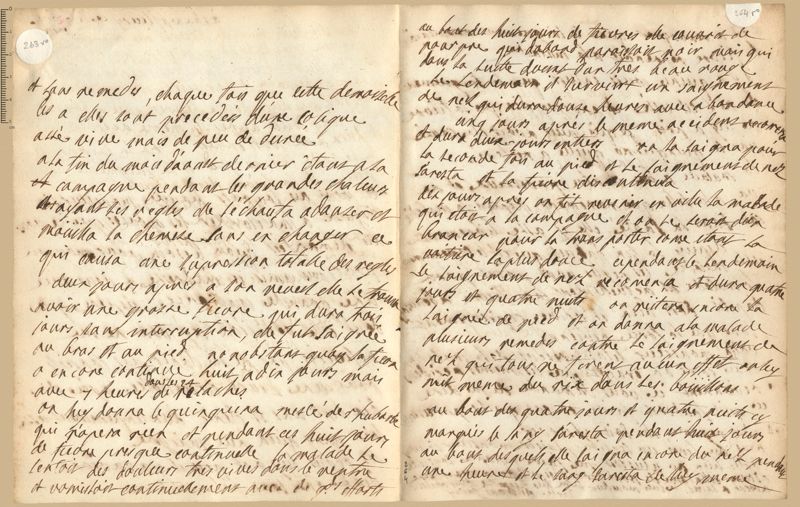 263 v°
et sans remedes, chaque fois que cette demoiselle
les a elles sont precedées d'une colique
assé vive mais de peu de durée
a la fin du mois d'aoust dernier étant a la
campagne pendant les grandes chaleurs
et ayant ses regles elle s'échaufa a danser et
mouilla sa chemise sans en changer ce
qui causa une supression totalle des regles
deux jours apres a son reveil elle se trouva
avoir une grosse fievre qui dura trois
jours sans interruption, elle fut saignée
au bras et au pied nonobstant quoy la fievre
a encore continué huit a dix jours mais
avec 7 heures de relaches
tous les
on luy donna le quinquina meslé de rhubarbe
qui n'opera rien et pendant ces huit jours
de fievre presque continuelle la malade se
sentoit des douleurs tres vives dans le ventre
et vomissoit continuellement avec de efforts
264 r°
au bout des huit jours de fievres elle couvrit de
pourpre qui d'abord paroissoit noir mais qui
dans la suite devint d'un tres beau rouge
le lendemain il survint un saignement
de nez qui dura douze heures avec abondance
cinq jours aprés le meme accident recommença
et dura deux jours entiers on la saigna pour
la seconde fois au pied et le saignement de nez
s'aresta et la fievre discontinua
dix jours aprés on fit revenir en ville la malade
qui étoit a la campagne et on se servit d'un
brancar pour la transporter come étant la
voiture la plus douce cependant le lendemain
le saignement de nez recomença et dura quatre
jours et quatre nuits on reitera encore la
saignée de pied et on donna a la malade
plusieurs remedes contre le saignement de
nez qui tous ne firent aucun effet on luy
mit meme du ris dans ses bouillons
au bout des quatre jours et quatre nuits cy
marqués le sang s'aresta pendant huit jours
au bout desquels elle saigna encore du nez pendant
une heure et le sang s'aresta de luy meme